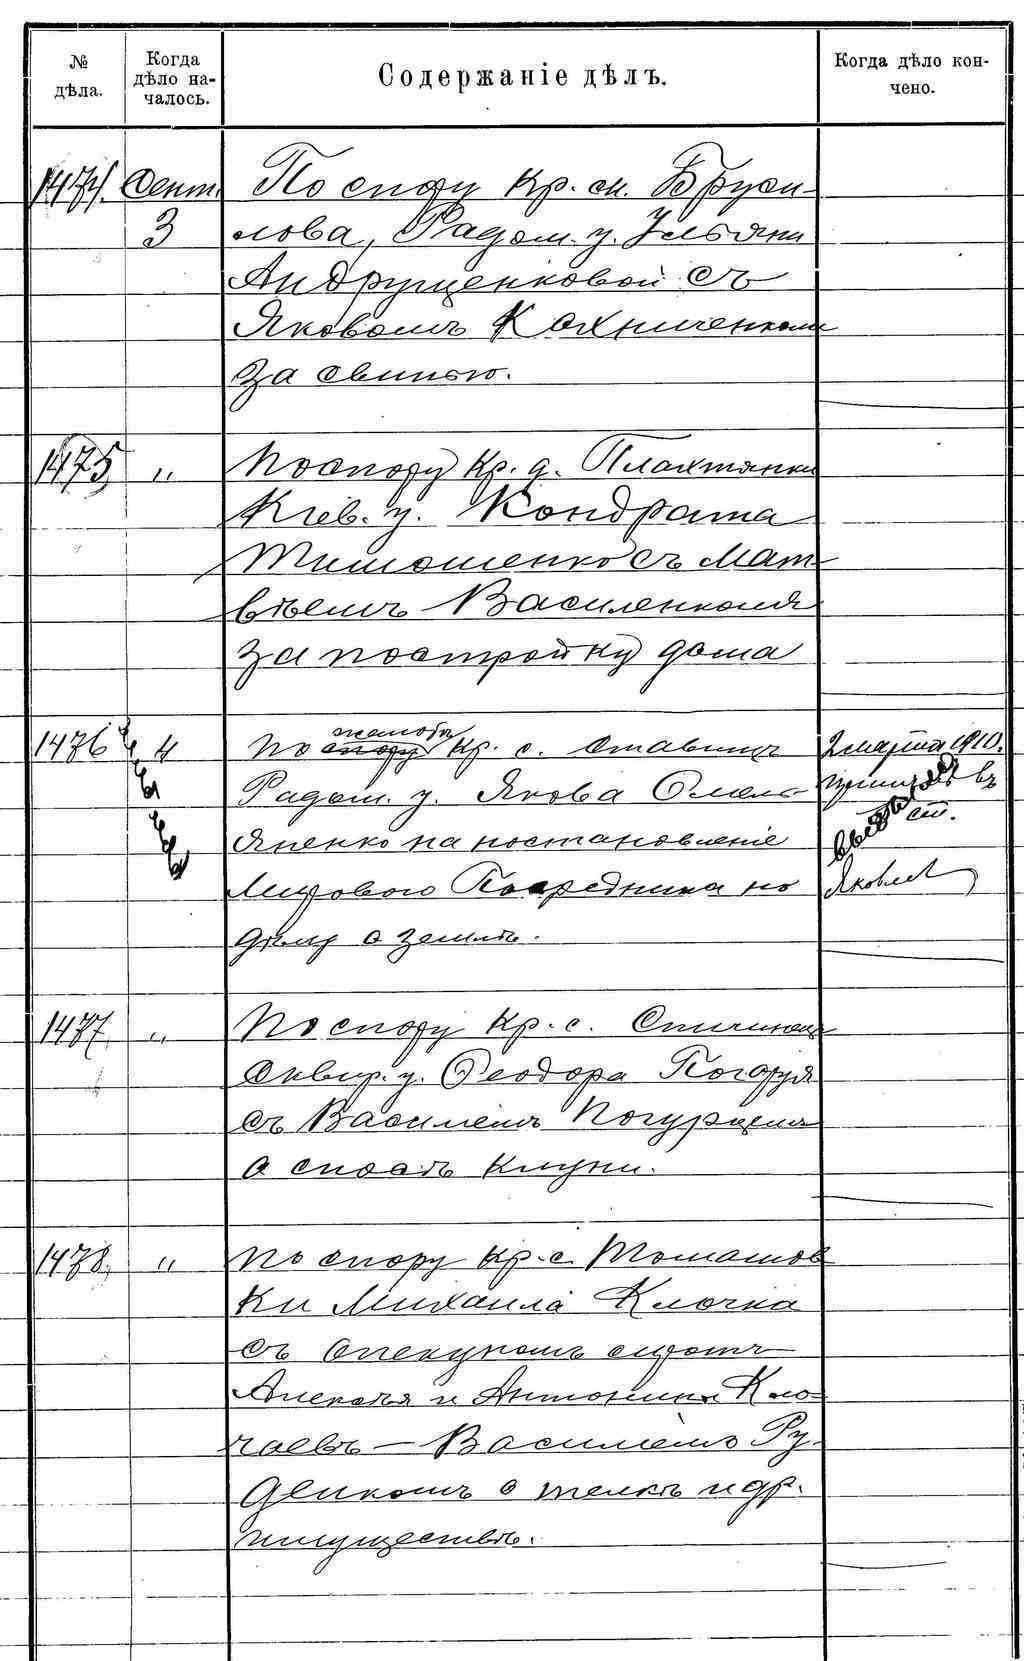 № дѣла.
Когда дѣло на-
чалось.
Содержаніе дѣлъ.
Когда дѣло кон-
чено.
1474. Сент. По спору кр. м. Бруси-
3 лова, Радом. у. Ульяны
Андрущенковой съ
Яковомъ Кохниченкомъ
за свинью.
1475 " По спору кр. д. Плахтянки
Кіев. у. Кондрата
Тимошенко съ Мат-
вѣемъ Василенкомъ
за постройку дома
1476 4 По спору жалобѣ кр. с. Ставищъ 2 марта 1910.
Радом. у. Якова Омель- въ
яненко на постановленіе ст.
Мирового Посредника по Яковлев
дѣлу о землѣ.
1477 " По спору кр. с. Спичинецъ
Сквир. у. Ѳеодора Погоруя
съ Василіемъ Погурцемъ
о сносѣ клуни.
1478, " По спору кр. с. Томашов
ки Михаила Клочка
съ опекуномъ сиротъ
Алексѣя и Антонины Кло-
чаевъ — Василіемъ Ру-
денкомъ о телкѣ и др.
имуществѣ.